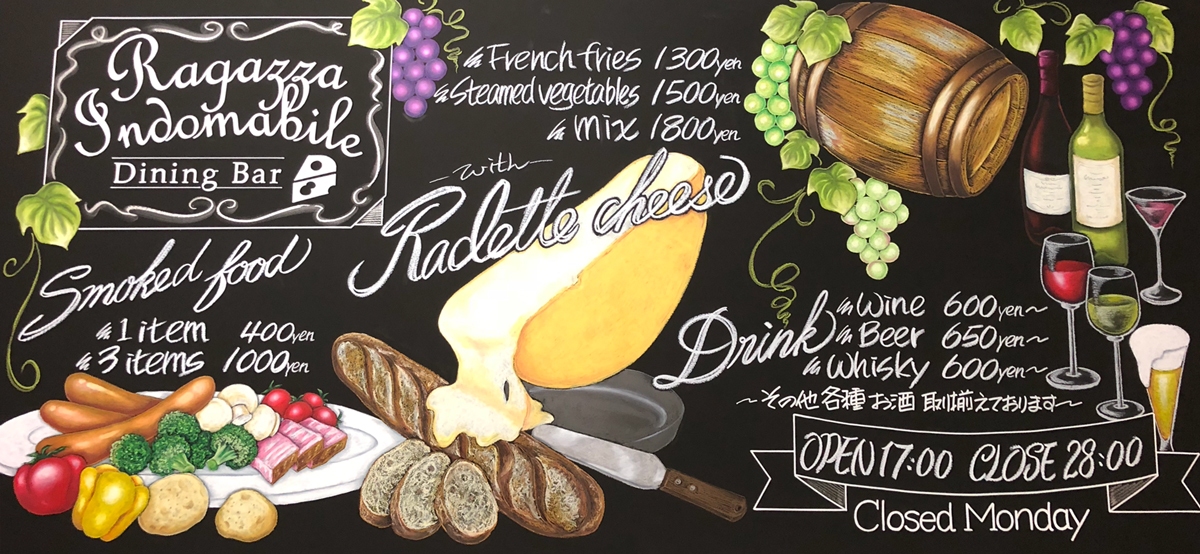 Ragazza
Indomabile
Dining Bar
French fries 1300yen
Steamed vegetables 1500yen
mix 1800yen
with
Raclette cheese
Smoked food
1 item 400yen
3 items 1000yen
Drink
Wine 600yen~
Beer 650yen~
Whisky 600yen~
~その他 各種 お酒 取り揃えております~
OPEN 17:00 CLOSE 28:00
Closed Monday